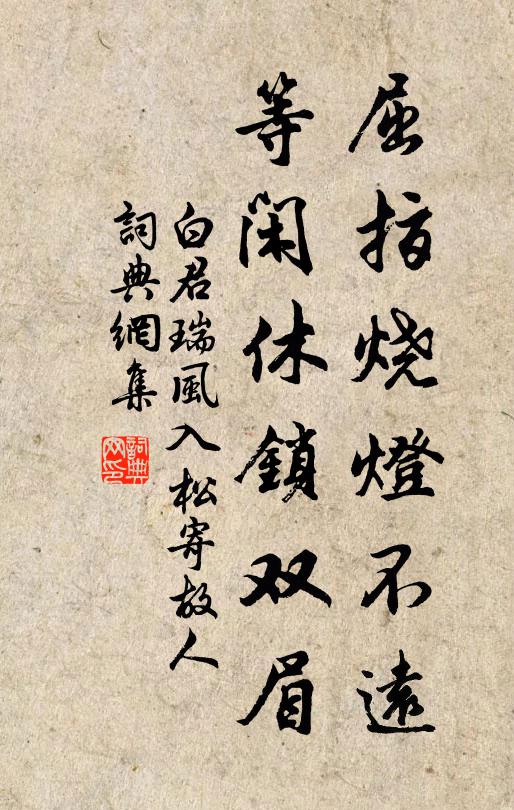 屈指烧燈不遠
等閑休鎖双眉
白君瑞風入松寄故人
詞典網集
詞典网印